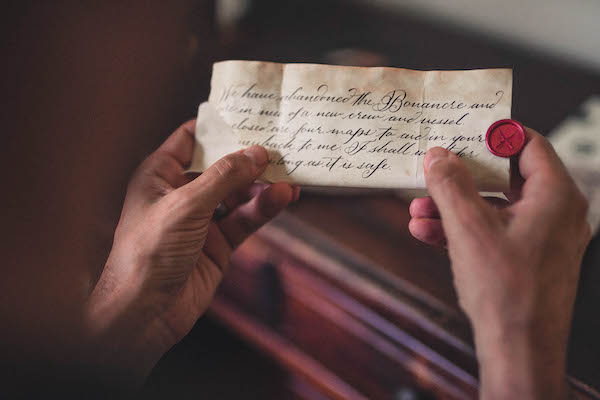 We have abandoned the Bonancre and
in need of a new crew and vessel
closed are four maps to aid in your
back to me. I shall for
long as it is safe.